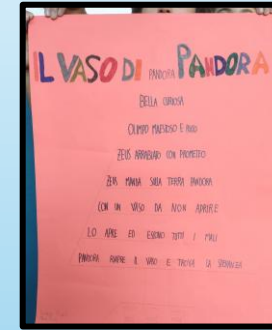 IL VASO DI PANDORA
PANDORA
BELLA CURIOSA
OLIMPO MAESTOSO E
ZEUS ARRABBIATO CON PROMETEO
ZEUS MANDA SULLA TERRA PANDORA
CON UN VASO DA NON APRIRE
LO APRE ED ESCONO TUTTI I MALI
PANDORA RIAPRE IL VASO E TROVA LA SPERANZA